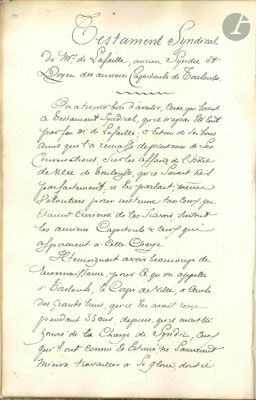 Testament Syndical
de Mr. de Lafaille, ancien Syndic et
Doyen des anciens Capitouls de Toulouse.
On a trouvé bon d'avertir, ceux qui liront
ce Testament Syndical, qu'il n'a pas été fait
par feu Mr. de Lafaille, c'est un de ses bons
amis qui l'a ramassé de plusieurs de ses
Conversations sur les affaires de l'hôtel
de Ville de Toulouse, qu'il savait très
parfaitement, et en parlait même
volontiers pour instruire tous ceux qui
étaient curieux de les savoir, surtout
les anciens Capitouls et ceux qui
aspiraient à cette charge.
Il témoignait avoir beaucoup de
reconnaissance, pour ce qu'on appelle
à Toulouse, le Corps de Ville, à cause
des grands biens, qu'il en avait reçu
pendant 55 ans, depuis qu'il avait été
pourvu de la Charge de Syndic, ceux
qui l'ont connu et estimé ne sauraient
mieux travailler à sa gloire,